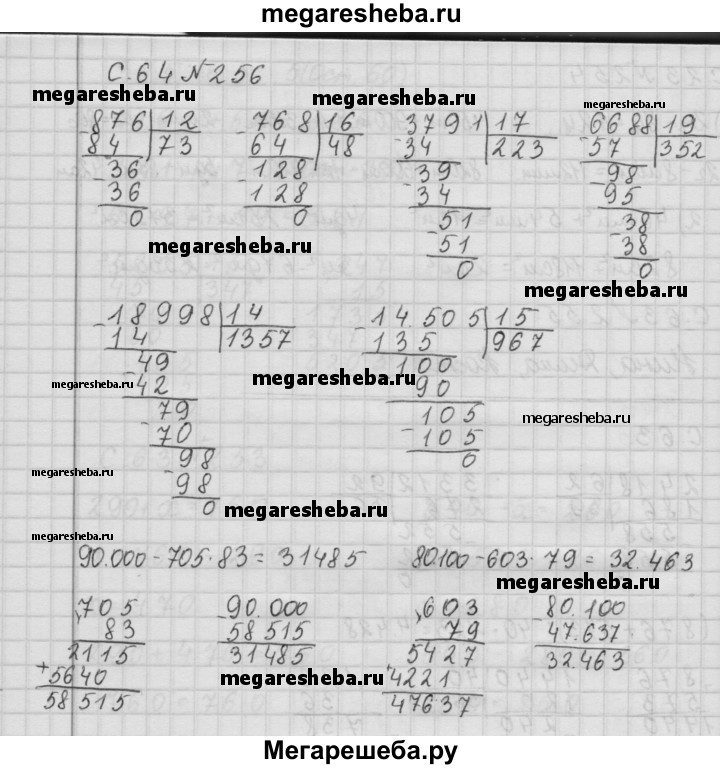 megaresheba.ru
С.64 №256
megaresheba.ru megaresheba.ru megaresheba.ru
-876 | 12 -768 | 16 -3791 | 17 -6688 | 19
84 | 73 64 | 48 34 | 223 57 | 352
-36 -128 -39 -98
36 128 34 95
0 0 -51 -38
megaresheba.ru 51 38
0 0
megaresheba.ru
-18998 | 14 -14.505 | 15
14 | 1357 135 | 967
-49 -100
megaresheba.ru 42 megaresheba.ru 90
-79 -105 megaresheba.ru
70 105
-98 0
megaresheba.ru 98
0 megaresheba.ru
megaresheba.ru
90.000-705·83=31485 80.100-603·79=32.463
megaresheba.ru
×705 -90.000 ×603 -80.100
83 58515 79 47.637
2115 31485 5427 32463
+5640 megaresheba.ru 4221 megaresheba.ru
58515 47637
Мегарешеба.ру